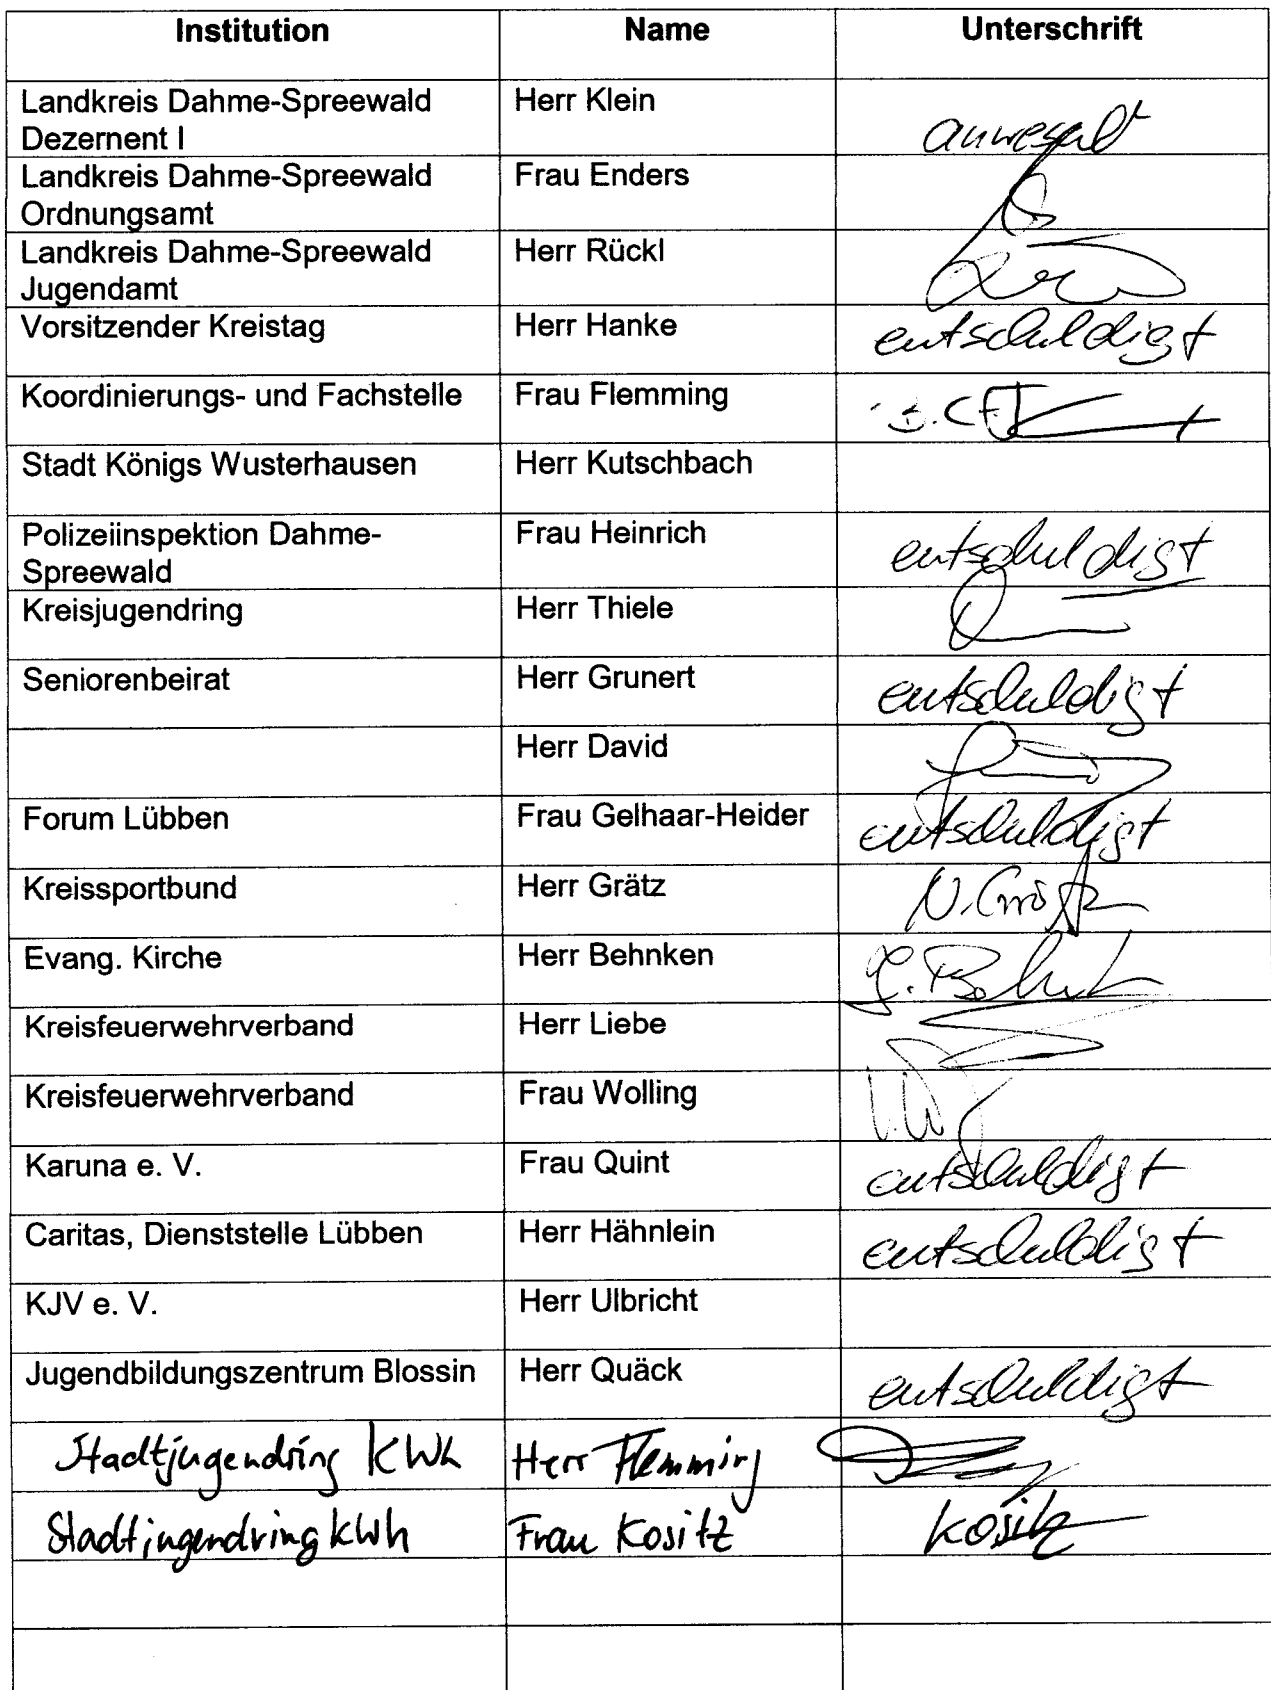 Institution Name Unterschrift
Landkreis Dahme-Spreewald Herr Klein
Dezernent I anwesend
Landkreis Dahme-Spreewald Frau Enders
Ordnungsamt
Landkreis Dahme-Spreewald Herr Rückl
Jugendamt
Vorsitzender Kreistag Herr Hanke entschuldigt
Koordinierungs- und Fachstelle Frau Flemming
Stadt Königs Wusterhausen Herr Kutschbach
Polizeiinspektion Dahme- Frau Heinrich entschuldigt
Spreewald
Kreisjugendring Herr Thiele
Seniorenbeirat Herr Grunert entschuldigt
Herr David
Forum Lübben Frau Gelhaar-Heider entschuldigt
Kreissportbund Herr Grätz N. Grätz
Evang. Kirche Herr Behnken
Kreisfeuerwehrverband Herr Liebe
Kreisfeuerwehrverband Frau Wolling
Karuna e. V. Frau Quint entschuldigt
Caritas, Dienststelle Lübben Herr Hähnlein entschuldigt
KJV e. V. Herr Ulbricht
Jugendbildungszentrum Blossin Herr Quäck entschuldigt
Stadtjugendring KWh Herr Flemming
Stadtjugendring kWh Frau Kositz Kositz